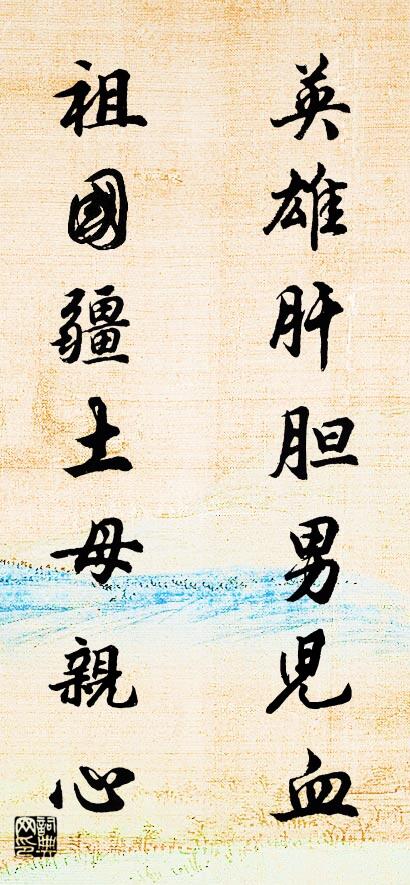 英雄肝胆男兒血
祖國疆土母親心
詞典网印